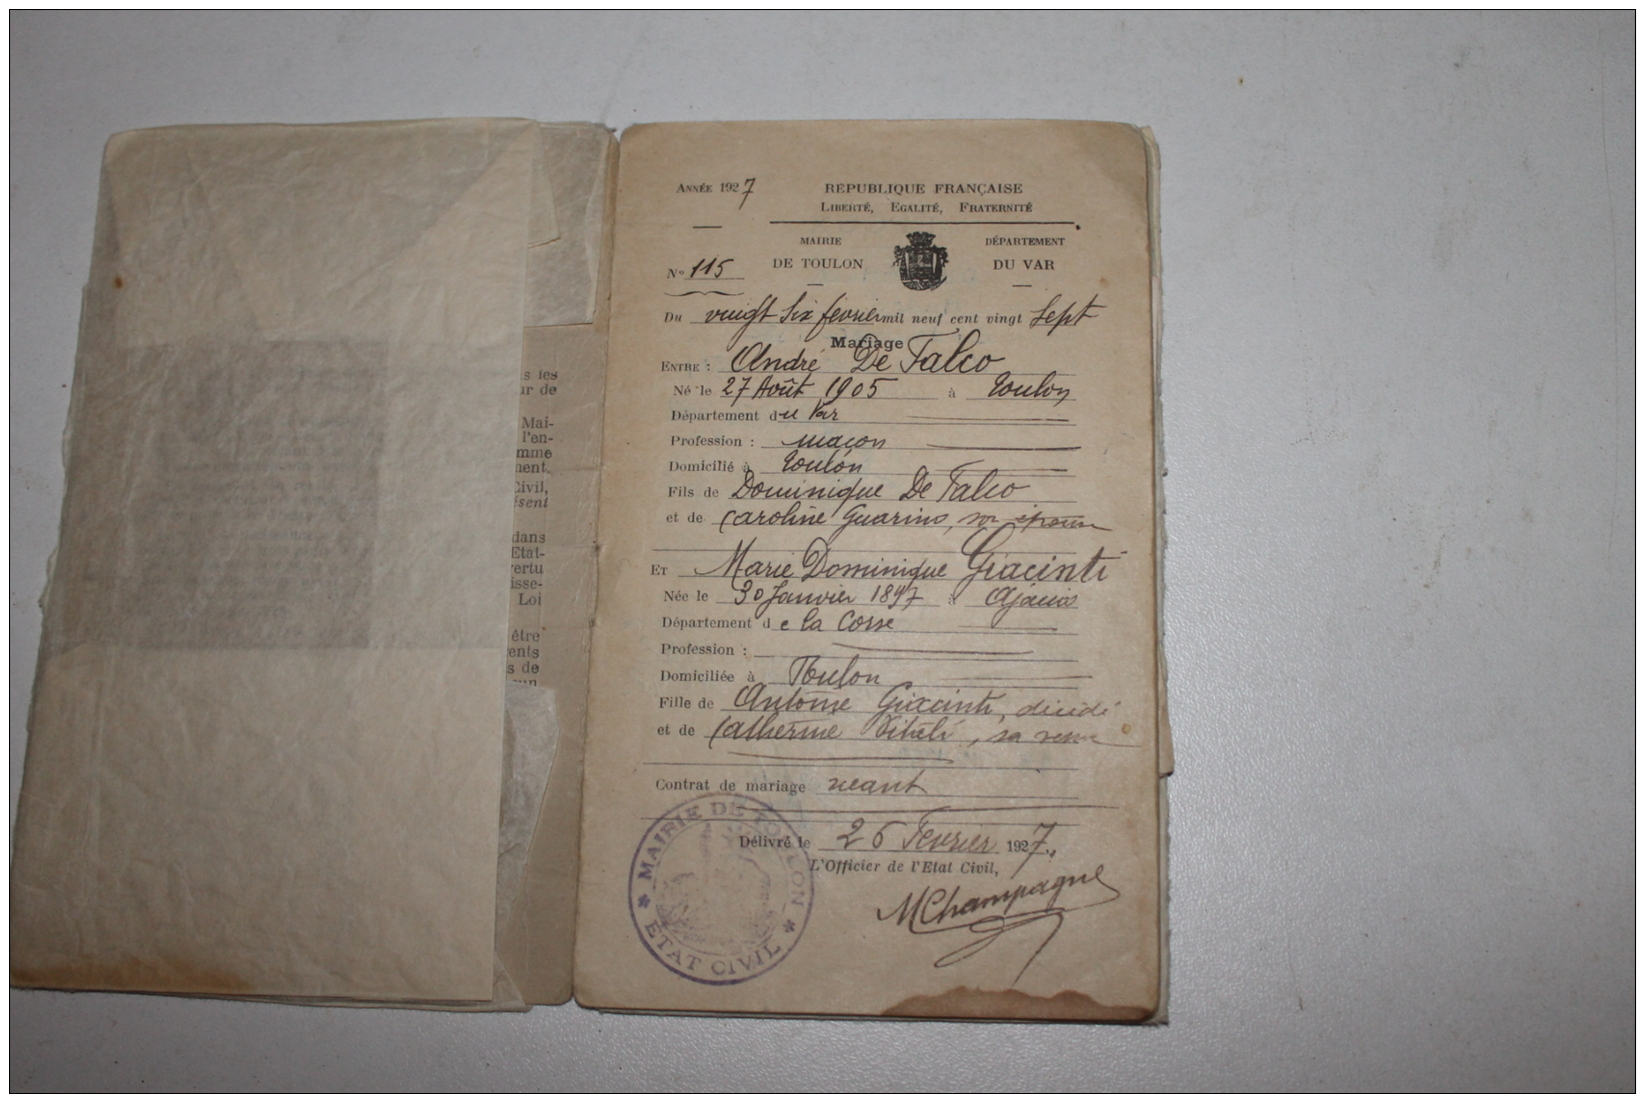 ANNÉE 1927
RÉPUBLIQUE FRANÇAISE
LIBERTÉ, EGALITÉ, FRATERNITÉ
MAIRIE
DE TOULON
DÉPARTEMENT
DU VAR
N° 115
Du vingt six février mil neuf cent vingt sept
Mariage
ENTRE : André De Falco
Né le 27 Août 1905 à Toulon
Département du Var
Profession : maçon
Domicilié à Toulon
Fils de Dominique De Falco
et de Caroline Guarino, son épouse
ET Marie Dominique Giacinti
Née le 30 Janvier 1897 à Ajaccio
Département de la Corse
Profession :
Domiciliée à Toulon
Fille de Antoine Giacinti, décédé
et de Catherine sa veuve
Contrat de mariage néant
Délivré le 26 Février 1927.
L'Officier de l'Etat Civil,
MChampagne
MAIRIE DE TOULON
ETAT CIVIL
s les
ur de
Mai-
l'en-
mme
ment.
Civil,
ésent
dans
Etat-
vertu
isse-
Loi
être
ents
s de